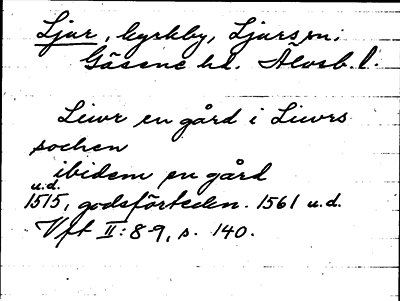 Ljur, kyrkby, Ljurs sn.
Gäsene hd. Älvsb. l.
Liwr en gård i Liwrs
sochen
ibidem en gård
u.d.
1515, godsförteckn. 1561 u.d.
Vft II: 8-9, s. 140.